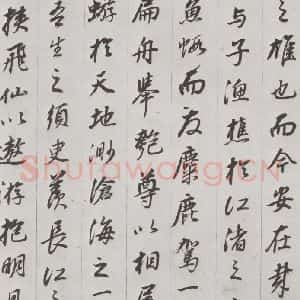 之雄也而今安在哉
与子渔樵於江渚之
鱼虾而友麋鹿驾一
扁舟举匏尊以相属
蝣於天地渺沧海之一
吾生之须臾羡长江之
挟飞仙以遨游抱明月
Shufawang.CN